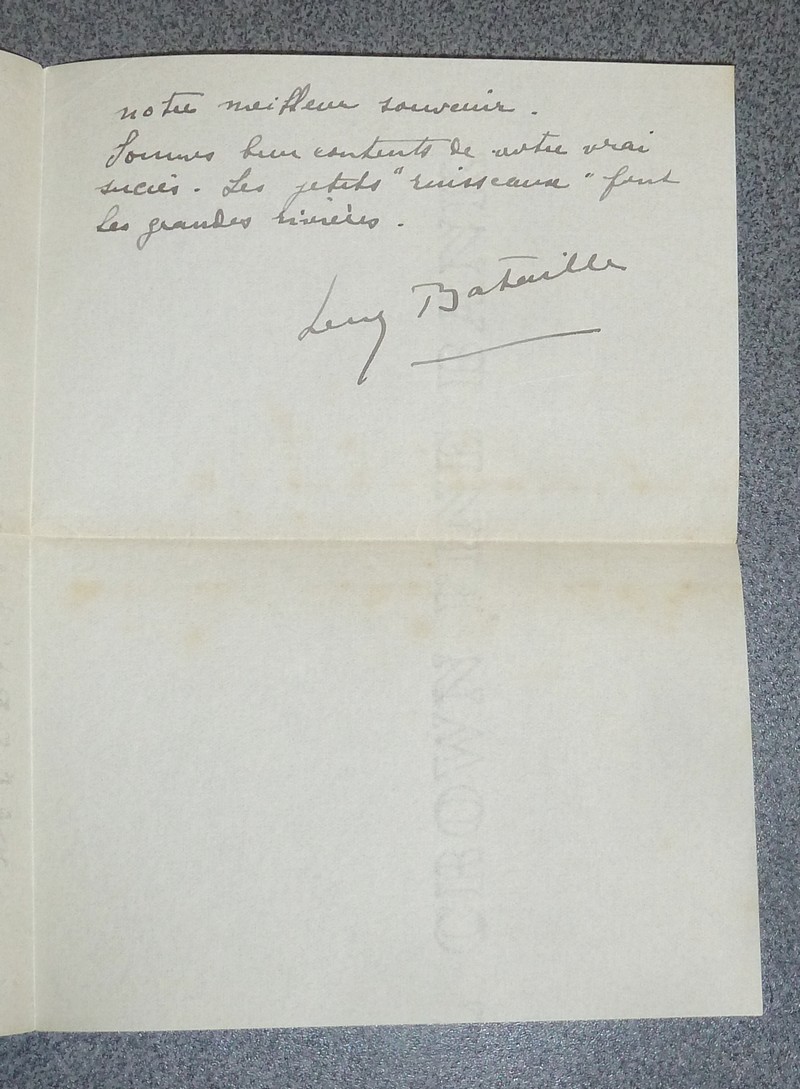 notre meilleur souvenir.
Sommes bien contents de votre vrai
succès. Les petits "ruisseaux" font
les grandes rivières.
Bataille
CROWN